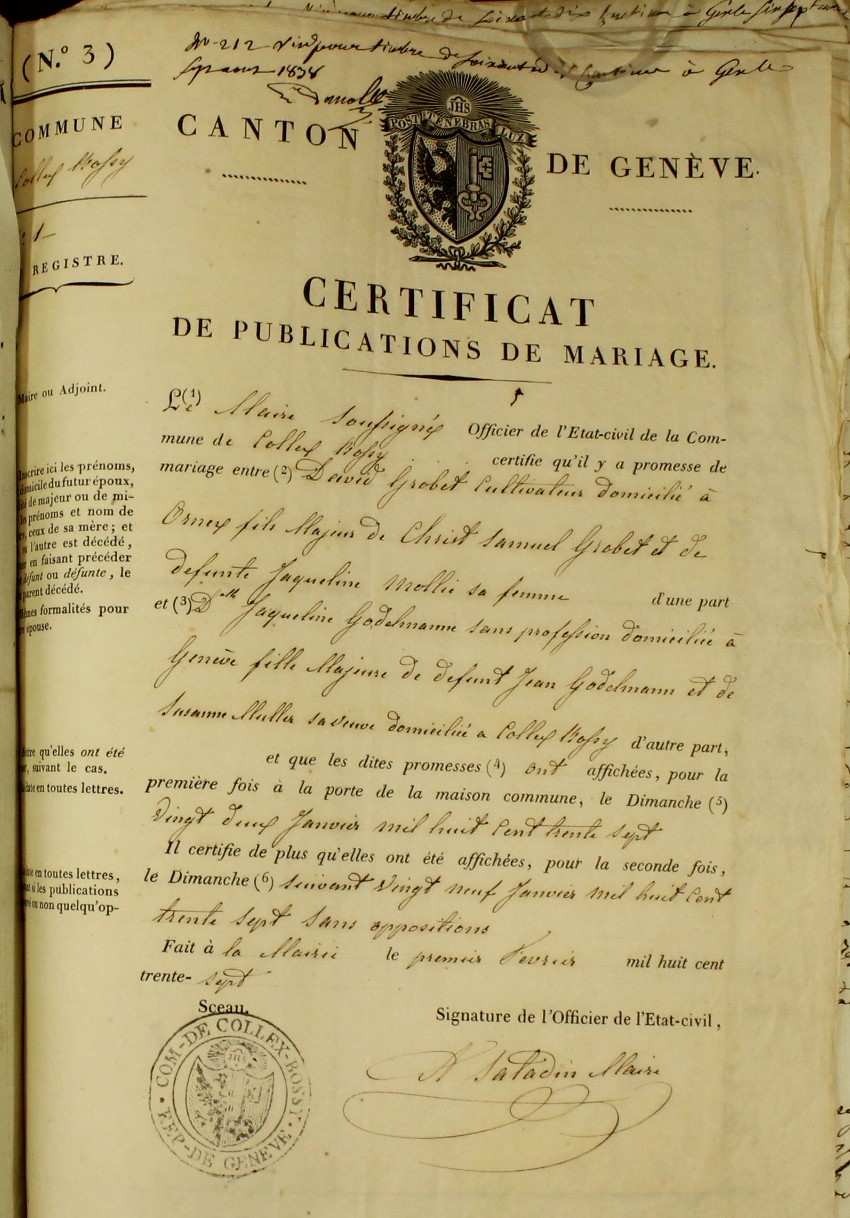 (N.º 3)
COMMUNE
Collex Bossy
1
REGISTRE.
Maire ou Adjoint.
Inscrire ici les prénoms,
domicile du futur époux,
de majeur ou de mi-
prénoms et nom de
ceux de sa mère ; et
l'autre est décédé,
en faisant précéder
défunt ou défunte, le
parent décédé.
Mêmes formalités pour
épouse.
Mettre qu'elles ont été
suivant le cas.
date en toutes lettres.
en toutes lettres,
si les publications
ou non quelqu'op-
Nº 212 Visé pour timbre de soixante dix Centimes à Gex le
1838
CANTON
JHS
POST TENEBRAS LUX
DE GENÈVE.
CERTIFICAT
DE PUBLICATIONS DE MARIAGE.
Le (1) Maire soussigné Officier de l'Etat-civil de la Com-
mune de Collex Bossy certifie qu'il y a promesse de
mariage entre (2) David Grobet Cultivateur domicilié à
Ornex fils Majeur de Christ Samuel Grobet et de
defunte Jaqueline Mollie sa femme d'une part
et (3) Dlle Jaqueline Godelmann sans profession domiciliée à
Genève fille Majeure de defunt Jean Godelmann et de
Susanne Muller sa veuve domiciliée a Collex Bossy d'autre part,
et que les dites promesses (4) ont affichées, pour la
première fois à la porte de la maison commune, le Dimanche (5)
Vingt deux Janvier mil huit Cent trente sept
Il certifie de plus qu'elles ont été affichées, pour la seconde fois,
le Dimanche (6) suivant Vingt neuf Janvier mil huit Cent
trente sept sans oppositions
Fait à la Mairie le premier Fevrier mil huit cent
trente- sept
Sceau.
Signature de l'Officier de l'Etat-civil,
COM-DE COLLEX-BOSSY
REP-DE GENEVE
A Saladin Maire